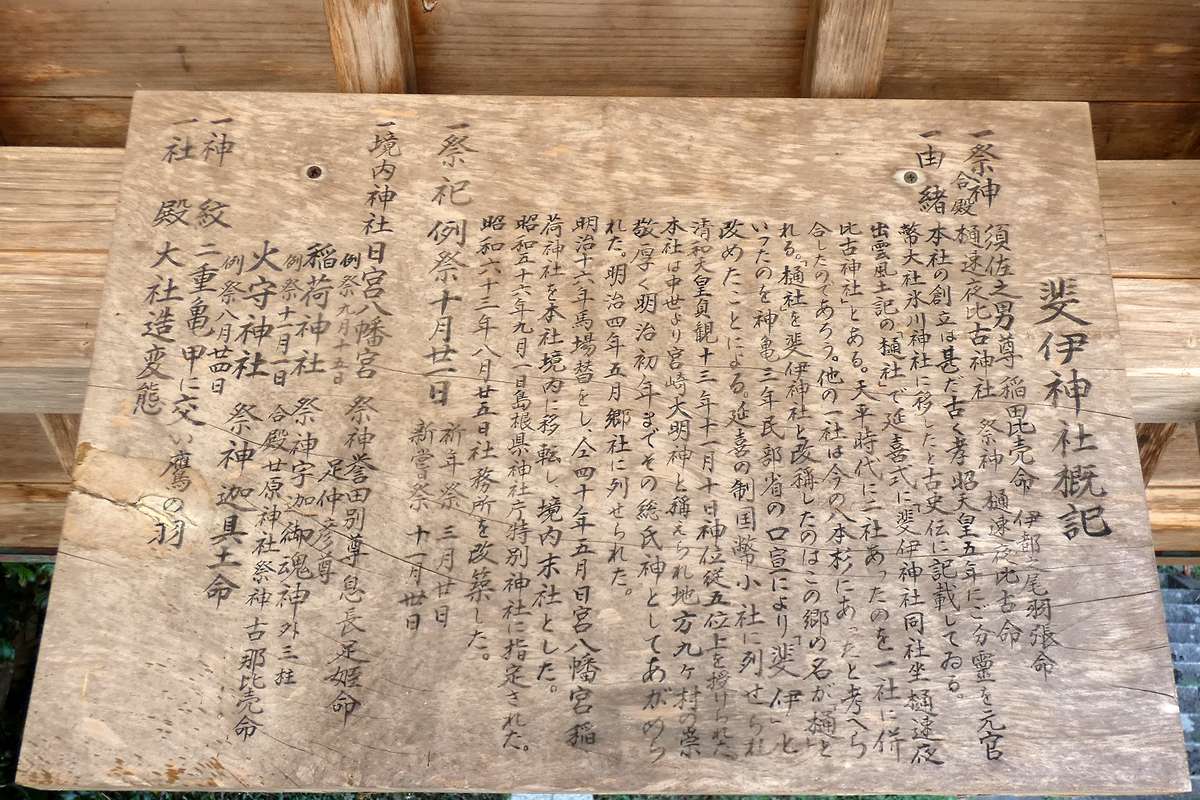 斐伊神社概記
一祭神 須佐之男尊 稲田比売命 伊都之尾羽張命
合殿 樋速夜比古神社 祭神 樋速夜比古命
一由緒 本社の創立は甚だ古く孝昭天皇五年にご分靈を元官
幣大社氷川神社に移したと古史伝に記載してゐる。
出雲風土記の「樋社」で延喜式に「斐伊神社同社坐樋速夜
比古神社」とある。天平時代に二社あったのを一社に併
合したのであろう。他の一社は今の八本杉にあったと考へら
れる。樋社を斐伊神社と改稱したのはこの郷の名が「樋」と
いったのを神亀三年民部省の口宣により「斐伊」と
改めたことによる。延喜の制国幣小社に列せられ
清和天皇貞観十三年十一月十日神位従五位上を授けられた
本社は中世より宮崎大明神と稱えられ地方九ヶ村の崇
敬厚く明治初年までその総氏神としてあがめら
れた。明治四年五月郷社に列せられた。
明治十六年馬場替をし、仝四十年五月日宮八幡宮稲
荷神社を本社境内に移転し、境内末社とした。
昭和五十六年九月一日島根県神社庁特別神社に指定された。
昭和六十三年八月廿五日社務所を改築した。
一祭祀 例祭十月廿一日 祈年祭 三月廿日
新嘗祭 十一月廿日
一境内神社 日宮八幡宮 祭神誉田別尊息長足姫命
例祭九月十五日 足仲彦尊
稲荷神社 祭神宇迦御魂神外三柱
例祭十一月一日 合殿廿原神社祭神古那比売命
火守神社 祭神迦具土命
例祭八月廿四日
一神紋 二重亀甲に交い鷹の羽
一社殿 大社造変態